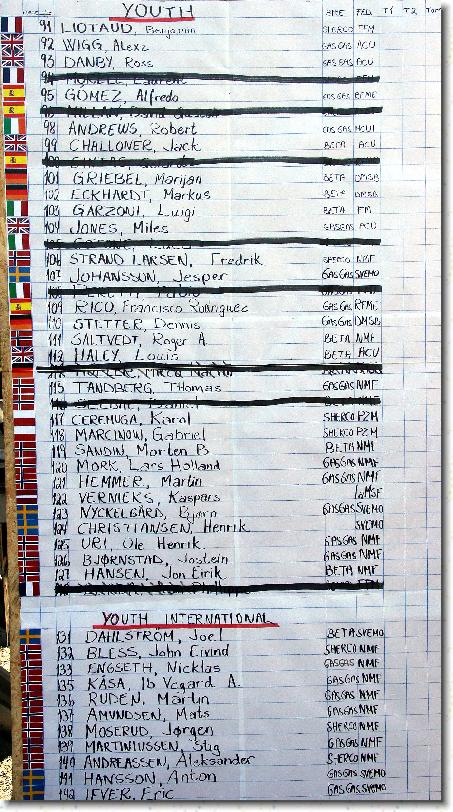 YOUTH BIKE FED. T1 T2
91 LIOTAUD, Benjamin SHERCO FFM
92 WIGG, Alexz GASGAS ACU
93 DANBY, Ross GASGAS ACU
94
95 GOMEZ, Alfredo GASGAS RFME
98 ANDREWS, Robert GASGAS
99 CHALLONER, Jack BETA ACU
101 GRIEBEL, Marijan BETA DMSB
102 ECKHARDT, Markus BETA DMSB
103 GARZONI, Luigi BETA
104 JONES, Miles GASGAS ACU
106 STRAND LARSEN, Fredrik SHERCO NMF
107 JOHANSSON, Jesper GASGAS SVEMO
109 RICO, Francisco Rodriguez GASGAS RFME
110 STETTER, Dennis GASGAS DMSB
111 SALTVEDT, Roger A. BETA NMF
112 HALEY, Louis BETA ACU
115 TANDBERG, THomas GASGAS NMF
117 CEREMUGA, Karol SHERCO PZM
118 MARCINOW, Gabriel SHERCO PZM
119 SANDIN, Morten B BETA NMF
120 MORK, Lars Holland GASGAS NMF
121 HEMMER, Martin GASGAS NMF
122 VERNIEKS, Kaspars LaMSF
123 NYCKELGÅRD, Bjørn GASGAS SVEMO
124 CHRISTIANSEN, Henrik SVEMO
125 URI, Ole Henrik GASGAS NMF
126 BJØRNSTAD, Jostein GASGAS NMF
127 HANSEN, Jon Eirik BETA NMF
YOUTH INTERNATIONAL
131 DAHLSTRÖM, Joel BETA SVEMO
132 BLESS, John Eivind SHERCO NMF
133 ENGSETH, Nicklas GASGAS NMF
135 KÅSA, Ib Vegard A. GASGAS NMF
136 RUDEN, Martin GASGAS NMF
137 AMUNDSEN, Mats GASGAS NMF
138 MOSERUD, Jørgen SHERCO NMF
139 MARTINIUSSEN, Stig GASGAS NMF
140 ANDREASSEN, Aleksander SHERCO NMF
141 HANSSON, Anton GASGAS SVEMO
142 IFVER, Eric GASGAS SVEMO